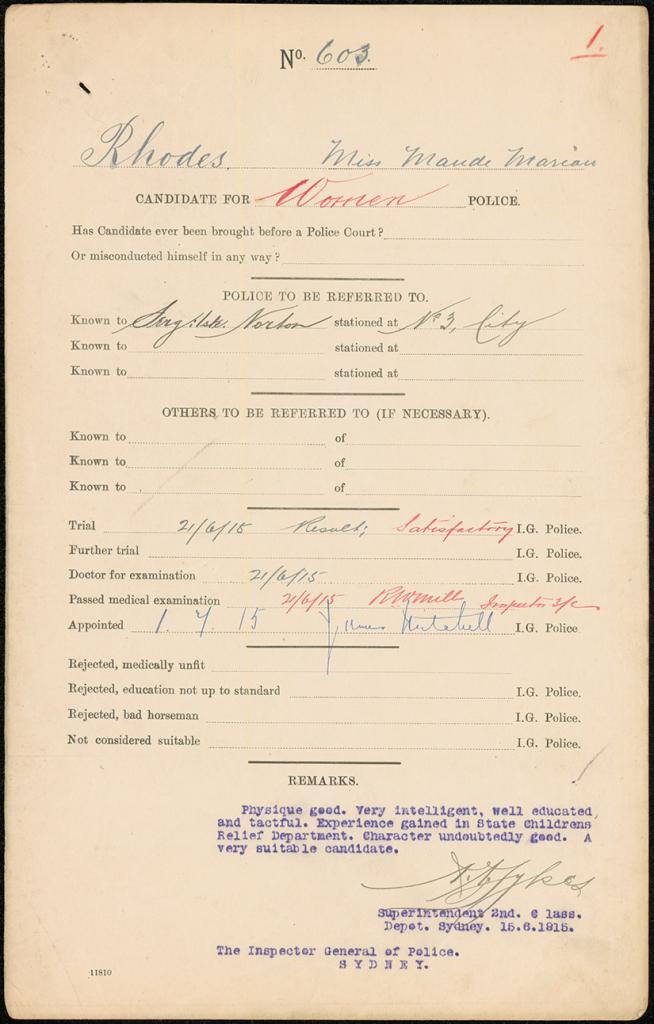 1.
No. 603.
Rhodes. Miss Maude Marian
CANDIDATE FOR Women POLICE.
Has Candidate ever been brought before a Police Court?
Or misconducted himself in any way?
POLICE TO BE REFERRED TO.
Known to Norton stationed at No 3, City
Known to stationed at
Known to stationed at
OTHERS TO BE REFERRED TO (IF NECESSARY).
Known to of
Known to of
Known to of
Trial 21/6/15 Result; Satisfactory I.G. Police.
Further trial I.G. Police.
Doctor for examination 21/6/15 I.G. Police.
Passed medical examination 21/6/15 Inspector 3/c
Appointed 1.7.15 James Mitchell I.G. Police
Rejected, medically unfit
Rejected, education not up to standard I.G. Police.
Rejected, bad horseman I.G. Police.
Not considered suitable I.G. Police.
REMARKS.
Physique good. Very intelligent, well educated
and tactful. Experience gained in State Childrens
Relief Department. Character undoubtedly good. A
very suitable candidate.
Sykes
Superintendent 2nd. C lass.
Depot. Sydney. 15.6.1915.
The Inspector General of Police.
SYDNEY.
11810